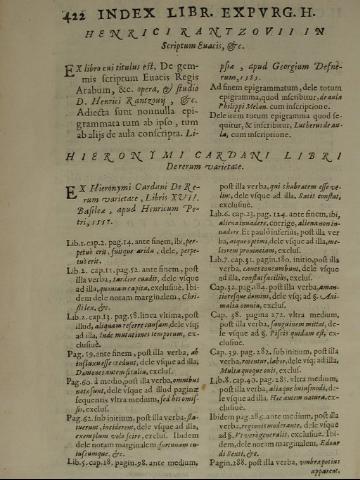 422 INDEX LIBR. EXPVRG. H.
HENRICI RANTZOVII IN
Scriptum Euacis, &c.
EX libro cui titulus est, De gem-
mis scriptum Euacis Regis
Arabum, &c. opera, & studio
D. Henrici Rantzouij, &c.
Adiecta sunt nonnulla epi-
grammata tum ab ipso, tum
ab alijs de aula conscripta. Li-
psiæ, apud Georgium Defne-
rum, 1585.
Ad finem epigrammatum, dele totum
epigramma, quod inscribitur, de aula
Philippi Melan. cum inscriptione.
Dele item totum epigramma quod se-
quitur, & inscribitur, Lutherus de au-
la, cum inscriptione.
HIERONYMI CARDANI LIBRI
De rerum varietate.
EX Hieronymi Cardani De Re-
rum varietate, Libris XVII.
Basileæ, apud Henricum Pe-
tri, 1557.
Lib. 1. cap. 2. pag. 14. ante finem, ibi, per-
petuò erit, fuitque aridu, dele, perpe-
tuò erit.
Lib. 2. cap. 11. pag. 52. ante finem, post
illa verba, tardior euadit, dele vsque
ad illa, quoniam capita, exclusiuè. Ibi-
dem dele notam marginalem, Chri-
sti lex, &c.
Lib. 2. cap. 13. pag. 58. linea vltima, post
illud, aliquam referre causam, dele vsq;
ad illa, Inde mutationes temporum, ex-
clusiuè.
Pag. 59. ante finem, post illa verba, ab
influxu esse credunt, dele vsque ad illa,
exclus.
Pag. 60. à medio, post illa verba, omnibus
nota sunt, dele vsque ad illud paginæ
sequentis vltra medium, sed his omis-
sis, exclus.
Pag. 62. sub initium, post illa verba, sta-
tuerunt, inciderent, dele vsque ad illa,
exemplum velo scire, exclus. Ibidem
dele notam marginalem fortunam cu-
iuscumque, &c.
Lib. 5. cap. 18. pagin. 98. ante medium,
post illa verba, qui shabraem esse ve-
lint, dele vsque ad illa, Satis constat,
exclusiuè.
Lib. 6. cap. 23. pag. 124. ante finem, ibi,
alienam inuadere, corrige, aliena non in-
uadere. Et paulò inferius, post illa ver-
ba, atque optimi, dele vsque ad illa, me-
liorem pronunciationem, exclusiuè.
Lib. 7. cap. 31. pagin. 180. initio, post illa
verba, canes concumbant, dele vsque
ad illa, constat facilius, exclus.
Cap. 32. pag. 184. post illa verba, aman-
tioresque domini, dele vsq; ad §. Ani-
malia omnia, exclus.
Cap. 38. pagin. 272. vltra medium,
post illa verba, sanguinem mittit, de-
le vsque ad §. Piscis quoque est, ex-
clus.
Cap. 39. pag. 282. sub initium, post illa
verba, vocentur, labor, dele vsq; ad illa,
Musca quidam omnis, exclus.
Lib. 8. cap. 40. pag. 287. vltra medium,
post illa verba, aliaque huiusmodi, de-
le vsque ad illa. Hæc autem natura, ex-
clusiuè.
Ibidem pag. 289. ante medium, post illa
verba, regionis moderantis, dele vsque
ad §. Proni generalis, exclusiuè. Ibi-
dem, dele notam marginalem, Eduar-
di Sexti, &c.
Pagin. 288. post illa verba, vt umbra potius
appareat,